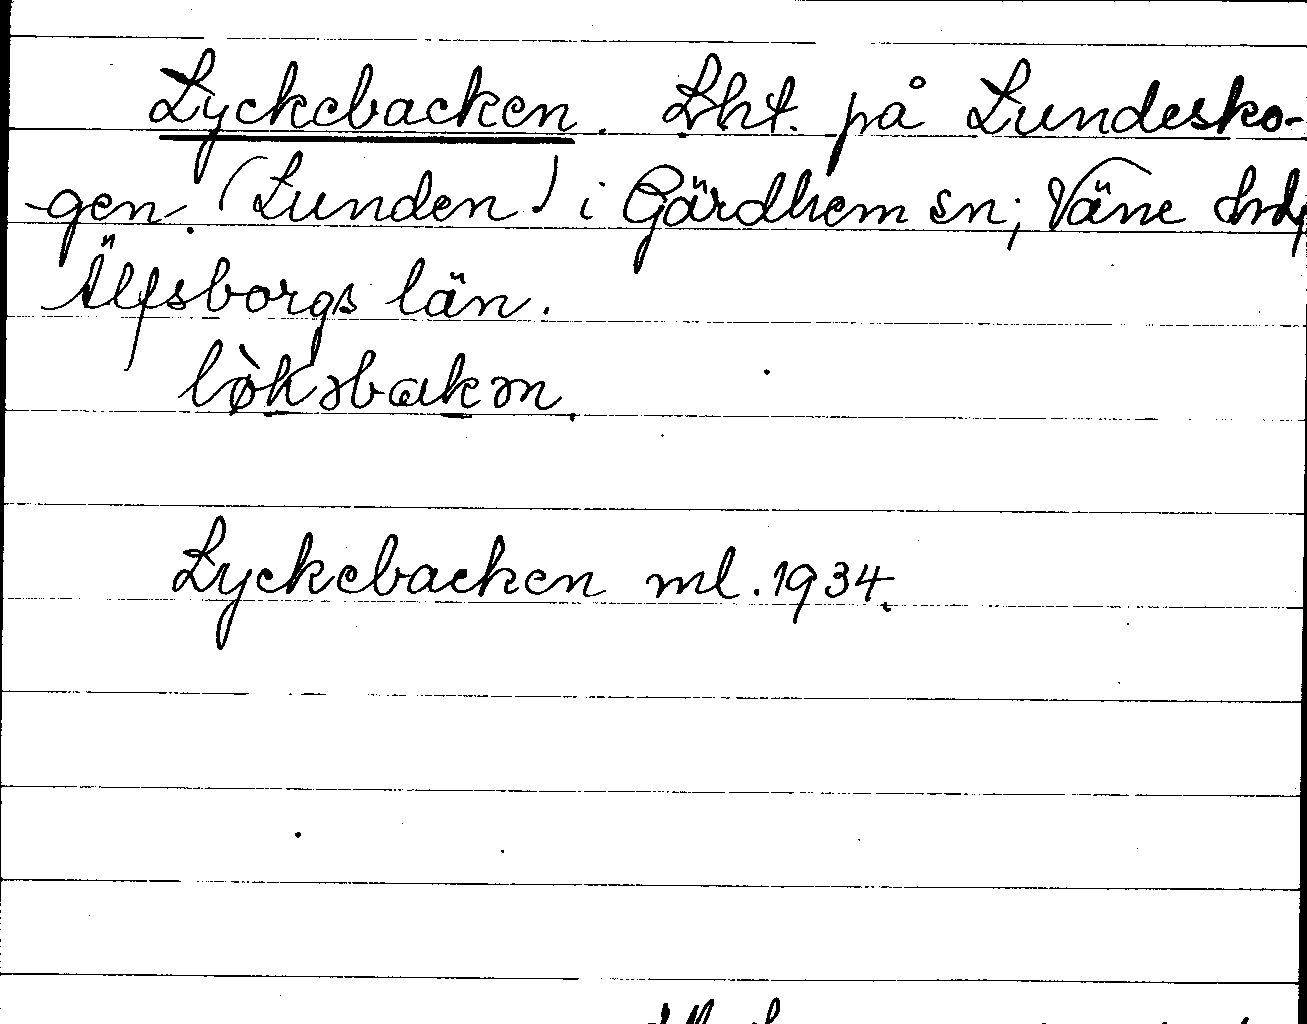 Lyckebacken. Lht. på Lundesko-
gen. (Lunden) i Gärdhem sn; Väne hrd,
Älfsborgs län.
lø̀kəbakən.
Lyckebacken ml. 1934.